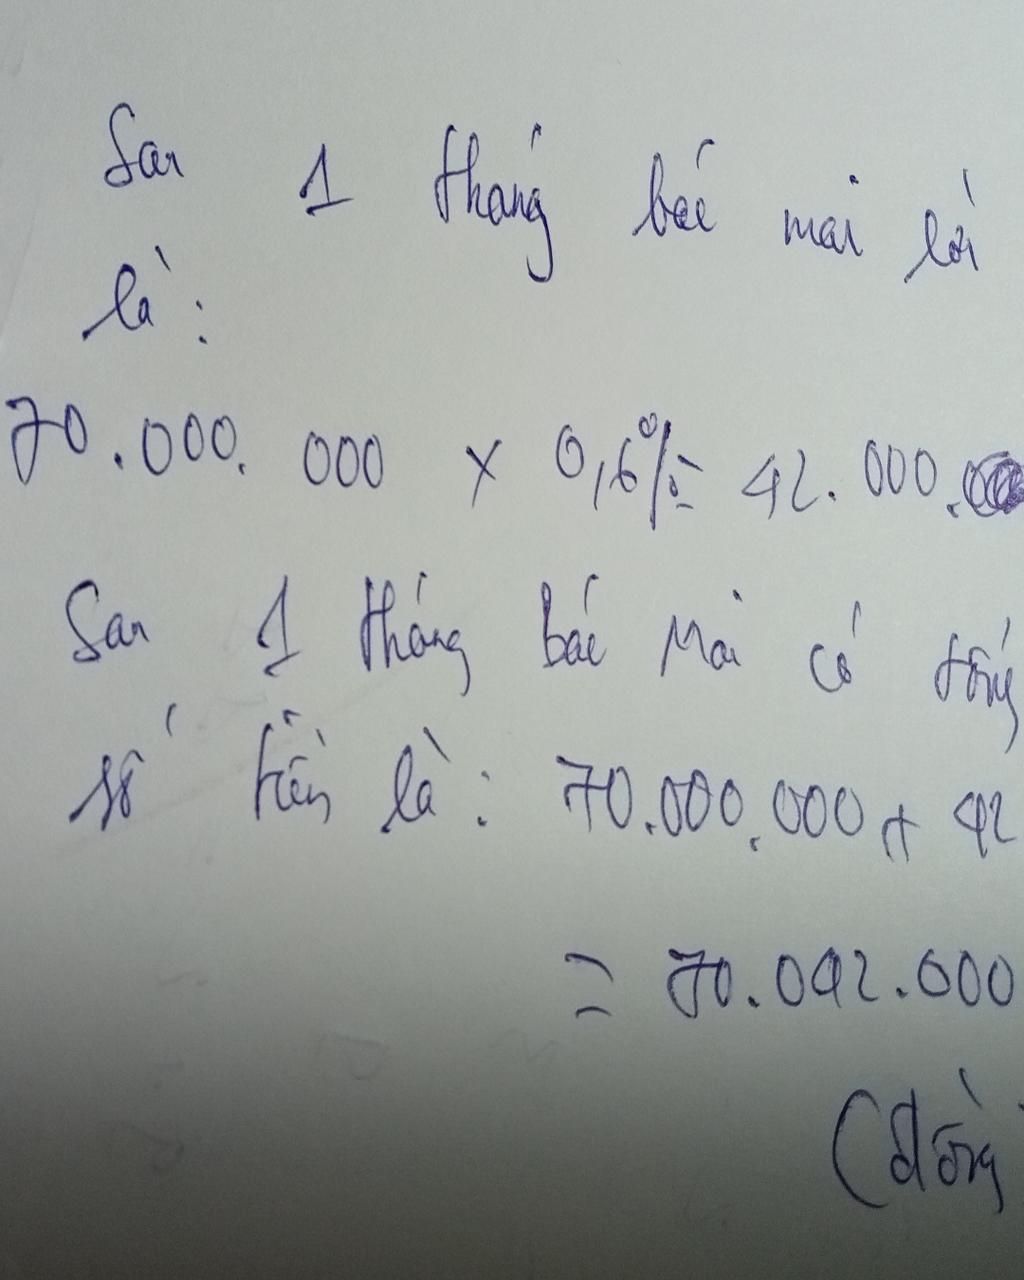 Sau 1 tháng bác mai lời
là:
70.000.000 x 0,6% = 42.000.
Sau 1 tháng bác Mai có tổng
số tiền là: 70.000.000 + 42
= 70.042.000
(đồng